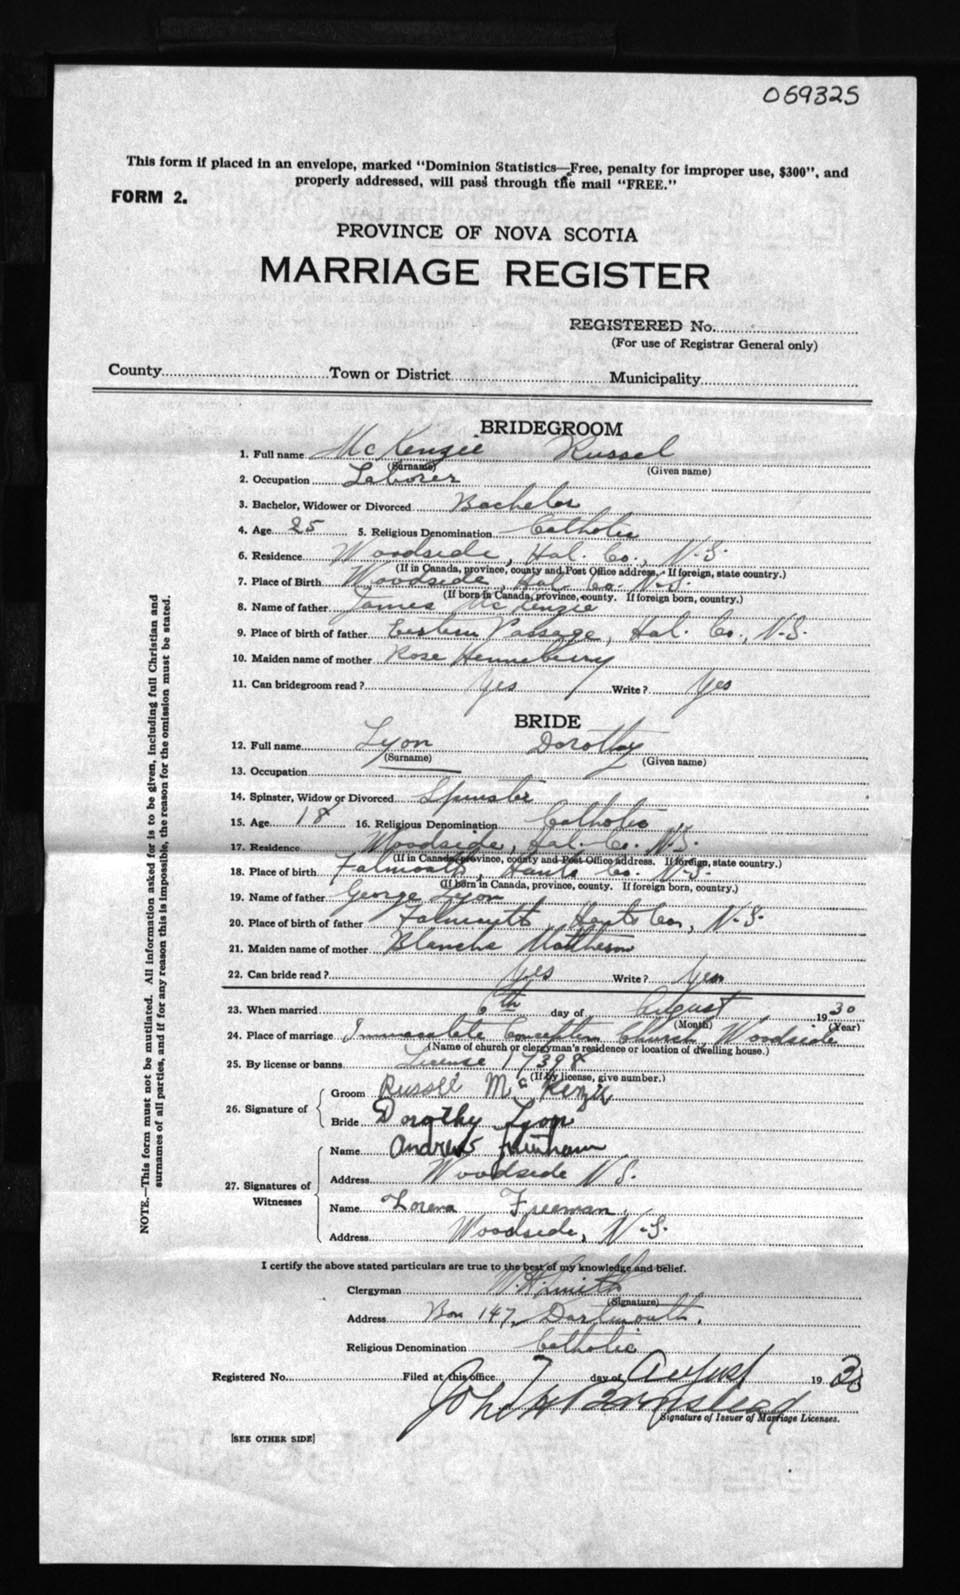 069325
This form if placed in an envelope, marked "Dominion Statistics—Free, penalty for improper use, $300", and
properly addressed, will pass through the mail "FREE."
FORM 2.
PROVINCE OF NOVA SCOTIA
MARRIAGE REGISTER
REGISTERED No.
(For use of Registrar General only)
County Town or District Municipality
BRIDEGROOM
1. Full name McKenzie Russel
(Surname) (Given name)
2. Occupation Laborer
3. Bachelor, Widower or Divorced Bachelor
4. Age 25 5. Religious Denomination Catholic
6. Residence Woodside, Hal. Co., N.S.
(If in Canada, province, county and Post Office address. If foreign, state country.)
7. Place of Birth Woodside, Hal. Co. N.S.
(If born in Canada, province, county. If foreign born, country.)
8. Name of father James McKenzie
9. Place of birth of father Eastern Passage, Hal. Co., N.S.
10. Maiden name of mother Rose Henneberry
11. Can bridegroom read? Yes Write? Yes
BRIDE
12. Full name Lyon Dorothy
(Surname) (Given name)
13. Occupation
14. Spinster, Widow or Divorced Spinster
15. Age 18 16. Religious Denomination Catholic
17. Residence Woodside, Hal. Co. N.S.
(If in Canada, province, county and Post Office address. If foreign, state country.)
18. Place of birth Falmouth, Hants Co. N.S.
(If born in Canada, province, county. If foreign born, country.)
19. Name of father George Lyon
20. Place of birth of father Falmouth, Hants Co., N.S.
21. Maiden name of mother Blanche
22. Can bride read? Yes Write? Yes
23. When married 6th day of August 1930
(Month) (Year)
24. Place of marriage Immaculate Conception Church, Woodside
(Name of church or clergyman's residence or location of dwelling house.)
25. By license or banns License 17398
(If by license, give number.)
26. Signature of
Groom Russel McKenzie
Bride Dorothy Lyon
27. Signatures of Witnesses
Name Andrew
Address Woodside N.S.
Name Lorena Freeman
Address Woodside, N.S.
I certify the above stated particulars are true to the best of my knowledge and belief.
Clergyman W.H. Smith
(Signature)
Address Box 147, Dartmouth.
Religious Denomination Catholic
Registered No. Filed at this office 7 day of August 1930
John H Barnstead
Signature of Issuer of Marriage Licenses.
[SEE OTHER SIDE]
NOTE.—This form must not be mutilated. All information asked for is to be given, including full Christian and
surnames of all parties, and if for any reason this is impossible, the reason for the omission must be stated.